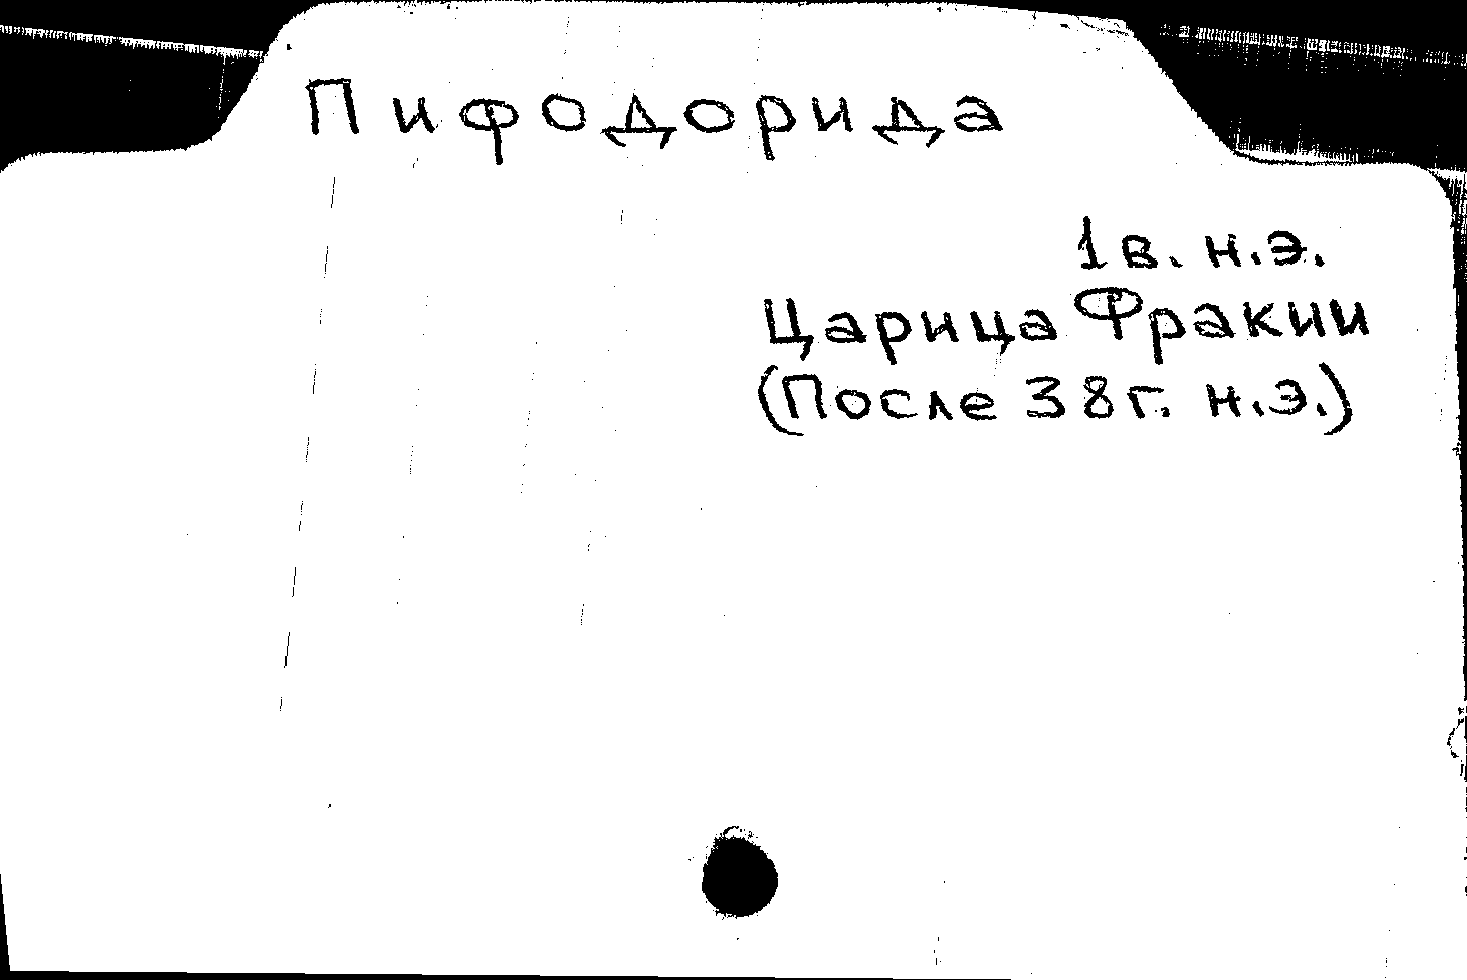 Пифодорида
1 в. н.э.
Царица Фракии
(После 38 г. н.э.)